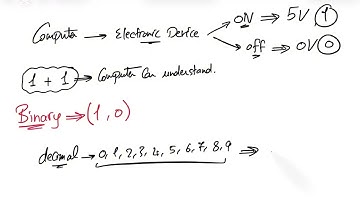 Computer → Electronic Device → ON ⇒ 5V 1
→ off ⇒ 0V 0
1 + 1 ⇒ Computer Can understand.
Binary ⇒ (1, 0)
decimal → 0, 1, 2, 3, 4, 5, 6, 7, 8, 9 ⇒